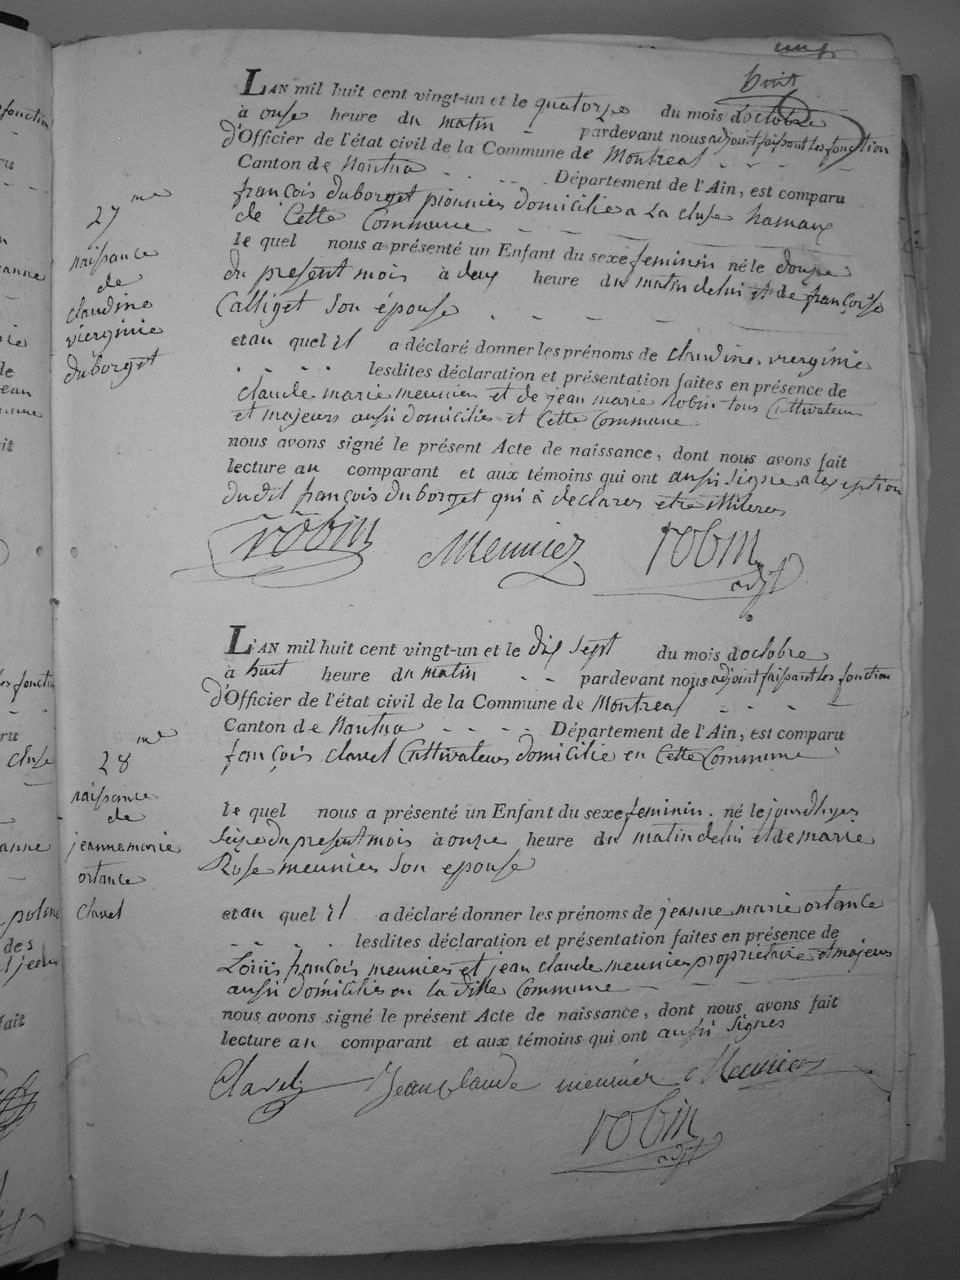 huit
L'AN mil huit cent vingt-un et le quatorze du mois d'octobre
à onse heure du matin pardevant nous adjoint faissant les fonction
d'Officier de l'état civil de la Commune de Montreal
Canton de Nantua Département de l'Ain, est comparu
françois duborget pionnier domicilie a La cluse hamaux
de Cette Commune
le quel nous a présenté un Enfant du sexe feminin né le douze
du present mois à deux heure du matin de lui et de françoise
Calliget Son épouse
et au quel il a déclaré donner les prénoms de claudine viergine
lesdites déclaration et présentation faites en présence de
claude marie meunier et de jean marie Robin tous Cultivateur
et majeurs aussi domicilies et Cette Commune
nous avons signé le présent Acte de naissance, dont nous avons fait
lecture au comparant et aux témoins qui ont aussi signe a lexeption
du dit françois duborget qui à declarer etre illiteres
robin Meunier robin
adjt
27me
naissance
de
claudine
vierginie
duborget
L'AN mil huit cent vingt-un et le dix Sept du mois d'octobre
à huit heure du matin pardevant nous adjoint faissant les fonction
d'Officier de l'état civil de la Commune de Montreal
Canton de Nantua Département de l'Ain, est comparu
françois clavel Cultivateur domicilie en Cette Commune
le quel nous a présenté un Enfant du sexe feminin né le jour d'hyer
Seize du present mois à onze heure du matin de lui et de marie
Rose meunier Son epouse
et au quel il a déclaré donner les prénoms de jeanne marie ortance
lesdites déclaration et présentation faites en présence de
Louis françois meunier et jean claude meunier proprietaire et majeurs
aussi domicilies en la ditte Commune
nous avons signé le présent Acte de naissance, dont nous avons fait
lecture au comparant et aux témoins qui ont aussi signes
Clavel Jean Claude meunier Meunier
robin
adjt
28me
naissance
de
jeanne marie
ortance
clavel